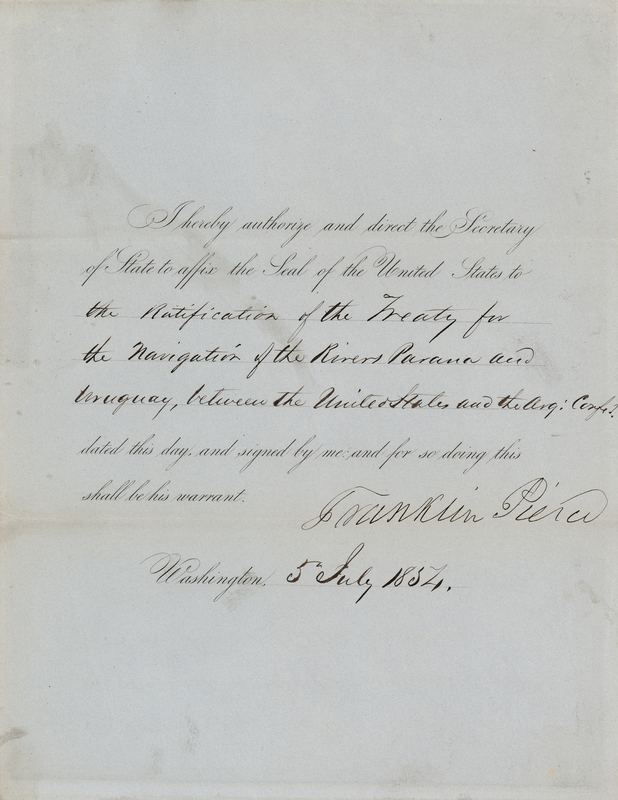 I hereby authorize and direct the Secretary
of State to affix the Seal of the United States to
the Ratification of the Treaty for
the Navigation of the Rivers Parana and
Uruguay, between the United States and the Arg: Confn.
dated this day, and signed by me: and for so doing this
shall be his warrant.
Franklin Pierce
Washington, 5th July 1854.